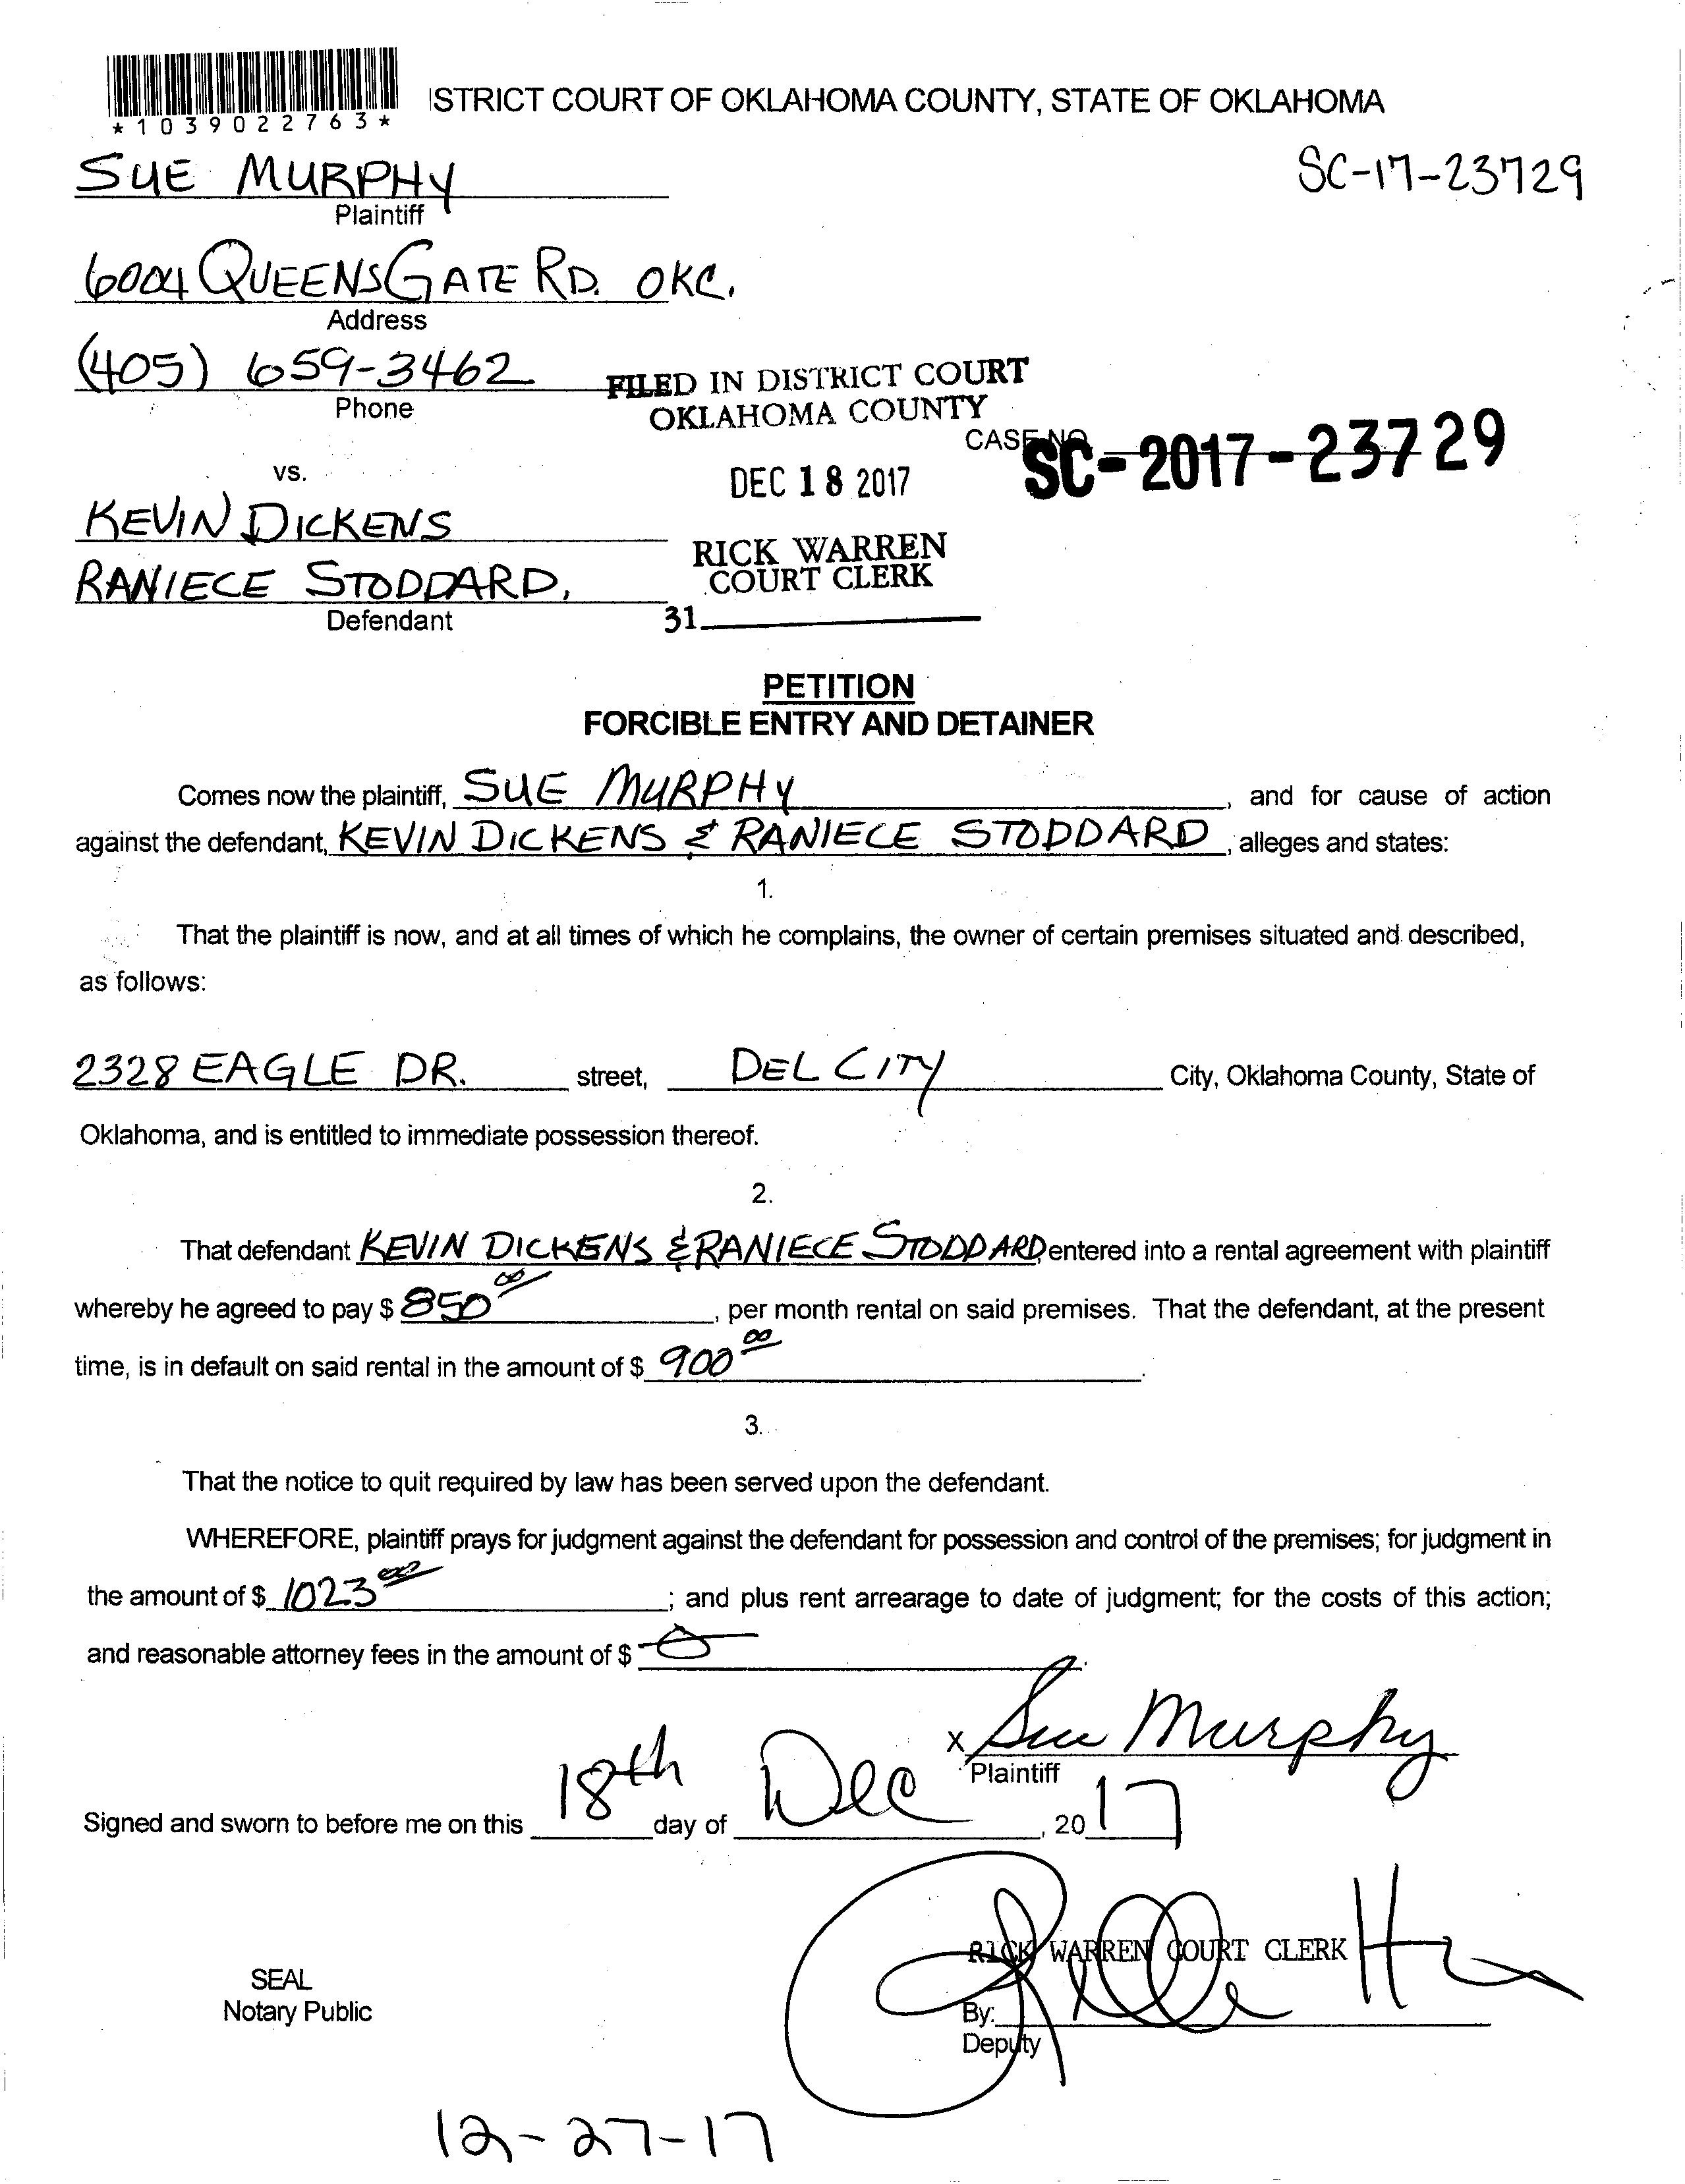 *1039022763*
ISTRICT COURT OF OKLAHOMA COUNTY, STATE OF OKLAHOMA
SUE MURPHY
SC-17-23729
Plaintiff
6004 QUEENSGATE RD. OKC.
Address
(405) 659-3462
Phone
FILED IN DISTRICT COURT
OKLAHOMA COUNTY
CASE NO. SC-2017-23729
vs.
DEC 18 2017
KEVIN DICKENS
RICK WARREN
COURT CLERK
RANIECE STODDARD,
Defendant
31
PETITION
FORCIBLE ENTRY AND DETAINER
Comes now the plaintiff, SUE MURPHY, and for cause of action
against the defendant, KEVIN DICKENS & RANIECE STODDARD, alleges and states:
1.
That the plaintiff is now, and at all times of which he complains, the owner of certain premises situated and described,
as follows:
2328 EAGLE DR. street, DEL CITY City, Oklahoma County, State of
Oklahoma, and is entitled to immediate possession thereof.
2.
That defendant KEVIN DICKENS & RANIECE STODDARD entered into a rental agreement with plaintiff
whereby he agreed to pay $ 850 00, per month rental on said premises. That the defendant, at the present
time, is in default on said rental in the amount of $ 900 00.
3.
That the notice to quit required by law has been served upon the defendant.
WHEREFORE, plaintiff prays for judgment against the defendant for possession and control of the premises; for judgment in
the amount of $ 1023 00; and plus rent arrearage to date of judgment; for the costs of this action;
and reasonable attorney fees in the amount of $ 0.
X Sue Murphy
Plaintiff
Signed and sworn to before me on this 18th day of Dec, 2017
RICK WARREN COURT CLERK
SEAL
Notary Public
By:
Deputy
12-27-17